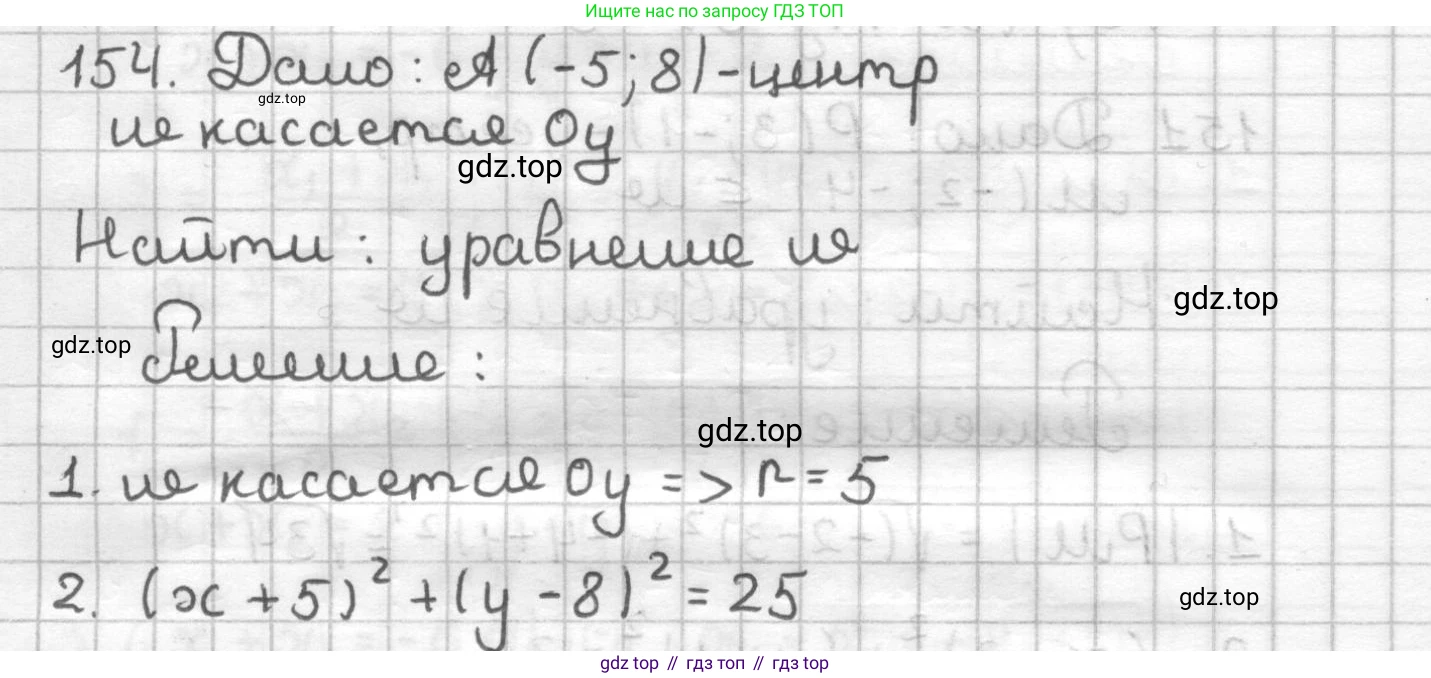 Ищите нас по запросу ГДЗ ТОП
154. Дано: A (-5; 8) - центр
gdz.top
касается Oy
gdz.top
Найти: уравнение
gdz.top
gdz.top
Решение:
gdz.top
1. касается Oy => r = 5
2. (x + 5)² + (y - 8)² = 25
gdz.top
gdz top // гдз топ // gdz top